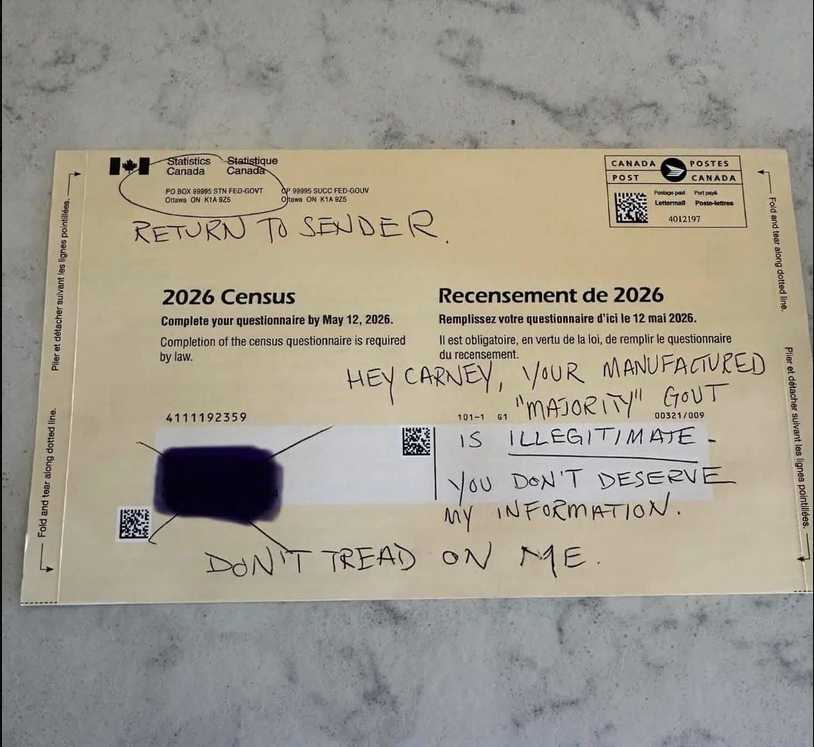 Statistics Canada
Statistique Canada
PO BOX 99995 STN FED-GOVT
Ottawa ON K1A 9Z5
CP 99995 SUCC FED-GOUV
Ottawa ON K1A 9Z5
CANADA POSTES
POST CANADA
Postage paid Port payé
Lettermail Poste-lettres
4012197
RETURN TO SENDER.
2026 Census
Complete your questionnaire by May 12, 2026.
Completion of the census questionnaire is required
by law.
Recensement de 2026
Remplissez votre questionnaire d'ici le 12 mai 2026.
Il est obligatoire, en vertu de la loi, de remplir le questionnaire
du recensement.
HEY CARNEY, YOUR MANUFACTURED
"MAJORITY" GOVT
4111192359
101-1 G1
00321/009
IS ILLEGITIMATE -
YOU DON'T DESERVE
MY INFORMATION.
DON'T TREAD ON ME.
Plier et détacher suivant les lignes pointillées.
Fold and tear along dotted line.
Fold and tear along dotted line.
Plier et détacher suivant les lignes pointillées.